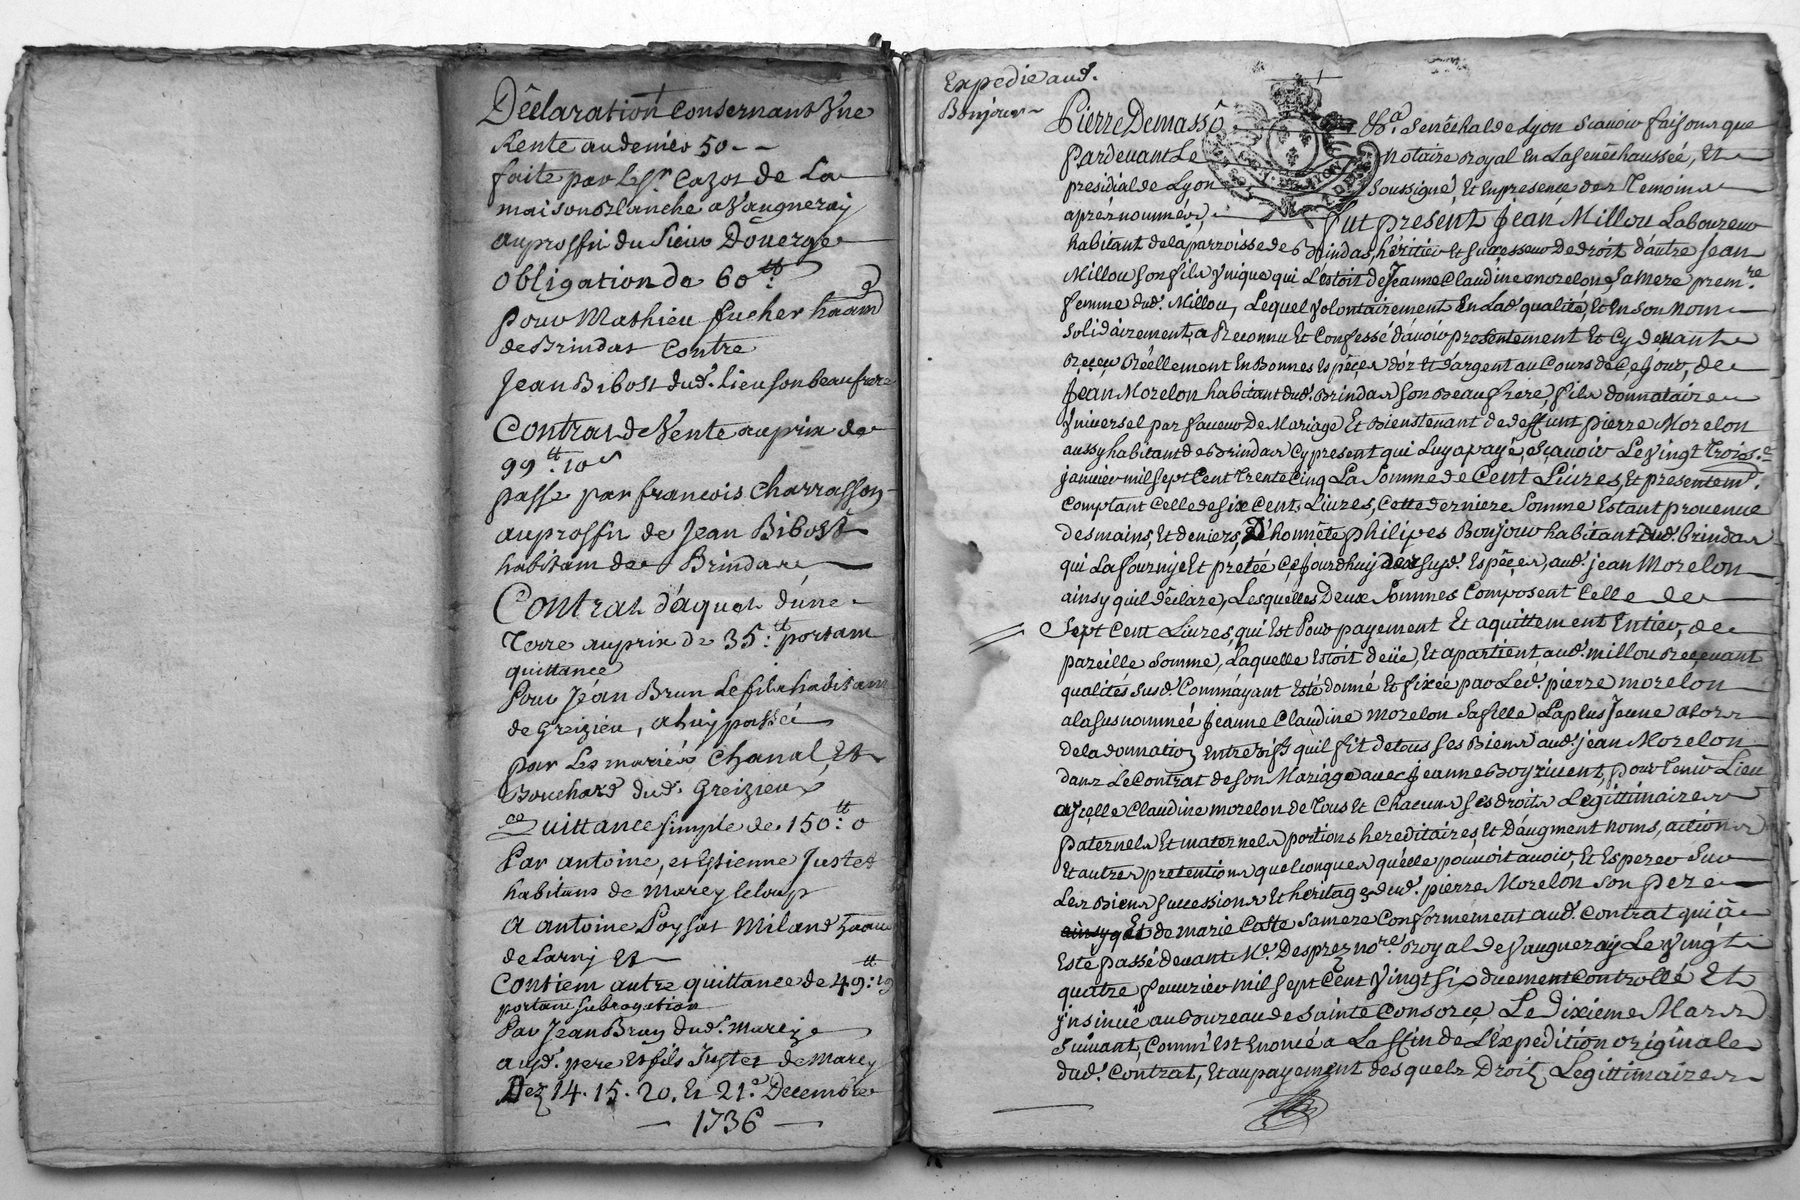 Déclaration Consernant Une
Rente au denier 50 - -
faite par le Sr. Cazot de La
maison Blanche a Vaugneray
au proffit du Sieur Douerge
Obligation de 60 tt.
pour Mathieu fucher haand
de Brindas Contre
Jean Bibost dud. Lieu son beau frere
Contrat de Vente au prix de
99 tt. 10 s
passé par francois Charrasson
au proffit de Jean Bibost
habitant de Brindas
Contrat d'aquet d'une
Terre au prix de 35 tt. portant
quittance
Pour Jean Brun Le fils habitant
de Greizieu, a luy passé
par Les mariés Chanal, Et
Bouchard dud. Greizieu
Quittance simple de 150 tt. 0
Par antoine, et Estienne Justet
habitans de Marcy le loup
A antoine Poysat Miland
de Larny Et
Contient autre quittance de 49 tt. 19
portant subrogation
Par Jean Brun dud. Marcy
ausd. pere et fils Justet de Marcy
Dez 14. 15. 20. Et 21e. Decembre
— 1736 —
Expedié aud.
Bonjour
Pierre Demasso Sénéchal de Lyon scavoir faisons que
Pardevant Le notaire royal En La senéchaussée, Et
presidial de Lyon soussigné, Et En presence des Temoins
aprés nommés, fut present Jean Millou Laboureur
habitant de la parroisse de Brindas, héritier Et successeur De droit d'autre Jean
Millou son fils Unique qui L'estoit de Jeanne Claudine morelon sa mere prem.re
femme dud. Millou, Lequel Volontairement En Lad. qualité, Et En son nom
solidairement, a Reconnu Et Confessé d'avoir presentement Et Cy devant
Reçeu Réellement En Bonnes Espéçes d'or Et d'argent au Cours de Ce Jour, de
Jean Morelon habitant dud. Brindas son Beau frere, fils donnataire
Universel par faveur De Mariage Et Bienstenant de deffunt pierre Morelon
aussy habitant de Brindas Cy present qui Luy a payé, sçavoir Le vingt Trois.e
janvier mil sept Cent trente Cinq La somme de Cent Livres, Et presentem.t
Comptant Celle de six Cent, Livres, Cette derniere somme Estant provenue
des mains, Et deniers, D'honnête philipes Bonjour habitant dud. brindas
qui La fournye Et pretée Cejourdhuy Des susd. Espéçes, aud. jean Morelon
ainsy quil déclare, Lesquelles Deux sommes Composent Celle de
sept Cent Livres, qui Est Pour payement Et aquittement Entier, de
pareille somme, Laquelle Estoit deüe, Et apartient, aud. millou Recevant
qualités susd. Comm'ayant Esté donné Et fixée par Led. pierre morelon
a la susnommée Jeanne Claudine morelon sa fille La plus Jeune alors
de la donnation Entre Vifs qu'il fit de tous ses Biens aud. jean Morelon
dans Le Contrat de son Mariage avec Jeanne Boyrivent, pour Tenir Lieu
a Icelle Claudine morelon de Tous Et Chacuns ses droits Legittimaires
paternels Et maternels portions hereditaires, Et d'augment noms, actions
Et autres pretentions quelconques qu'elle pouvoit avoir, Et Esperer sur
Les Biens successions Et heritages dud. pierre Morelon son pere
Et de marie Caste sa mere Conformement aud. Contrat qui a
Esté passé devant Me. Desprez no.re Royal de Vaugneray Le Vingt
quatre fevurier mil sept Cent Vingt six duement Controllé Et
jnsinué au Bureau de sainte Consorce Le Dixiéme Mars
suivant, Comm'Est Enoncé a La ffin de L'Expedition originale
dud. Contrat, Et au payement des quels Droits Legittimaires